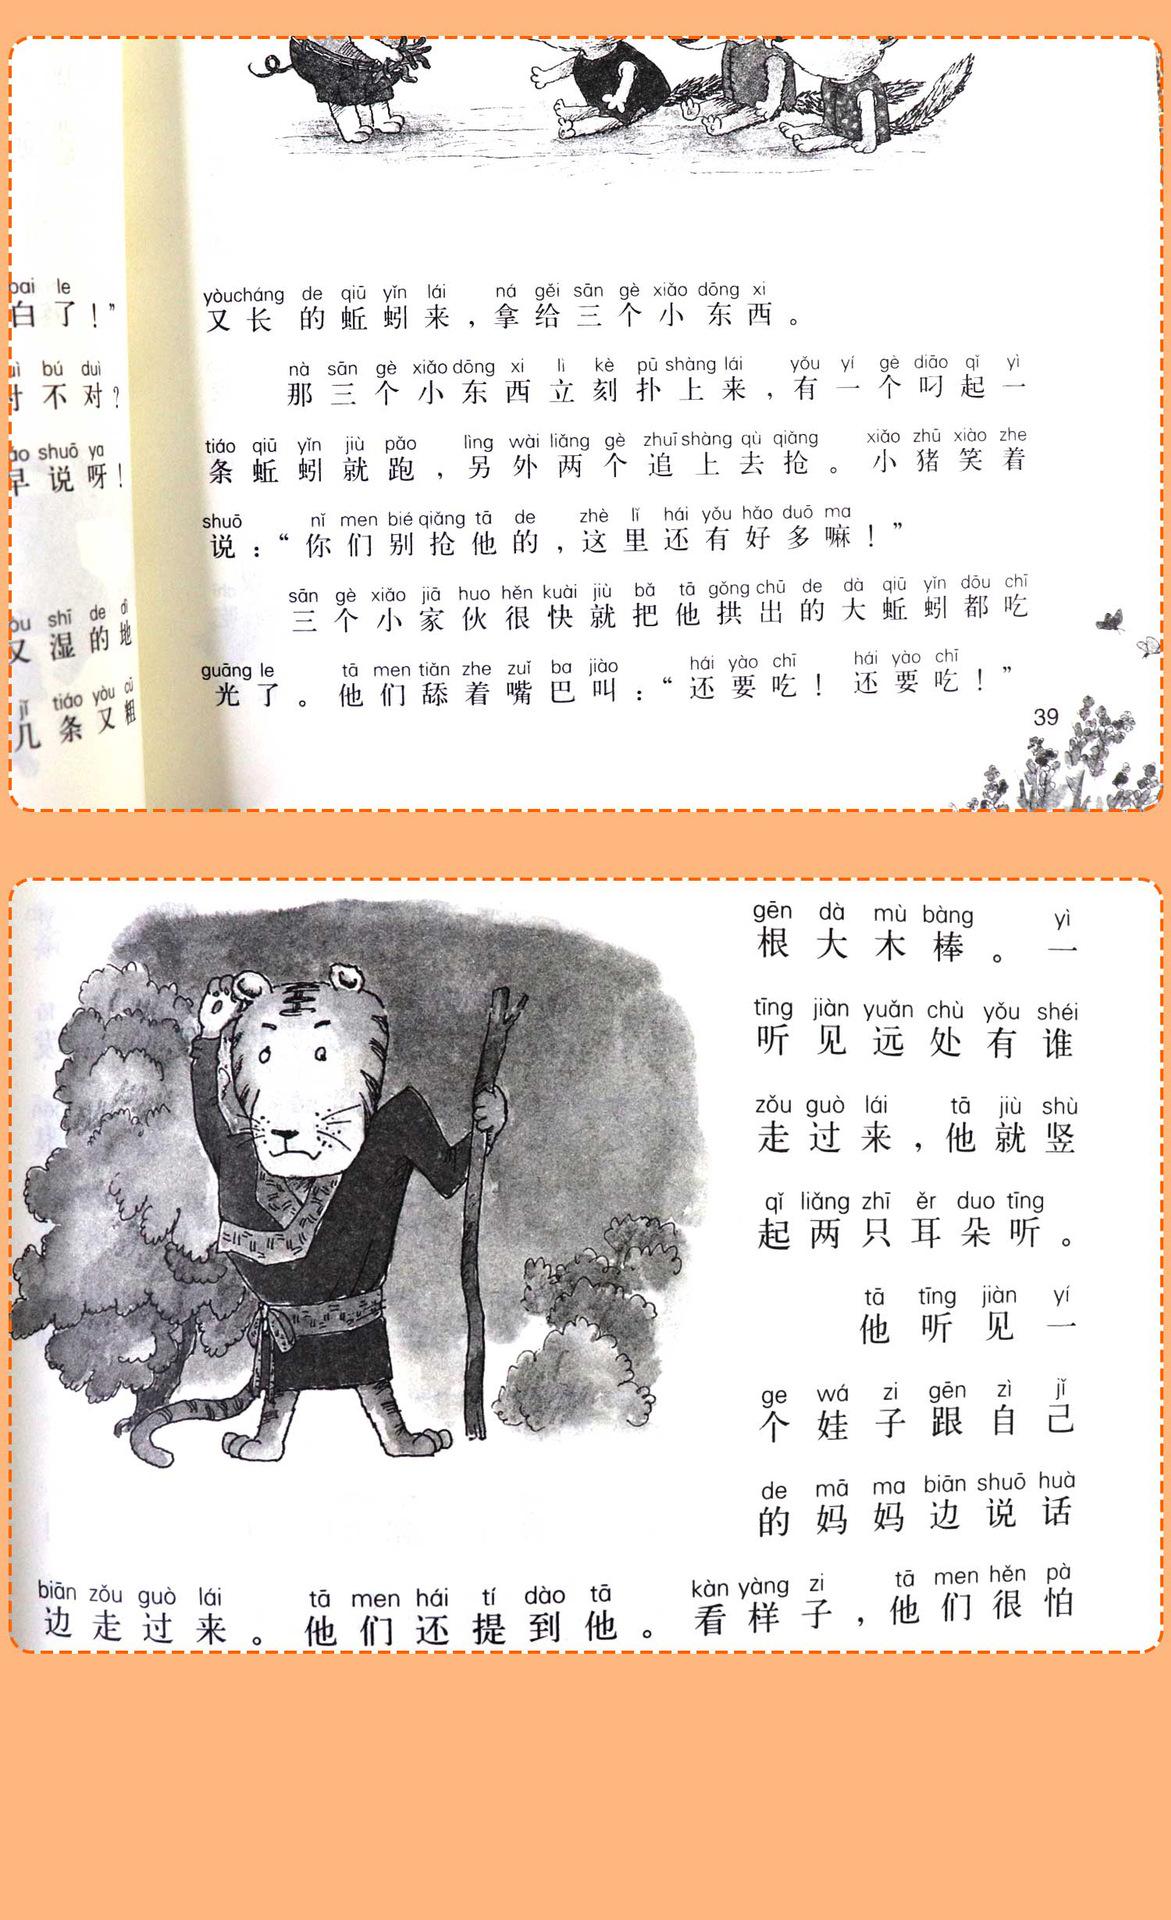 bai le
白了！”
duì bú duì
对不对？
shuō ya
早说呀！
yòu shī de dì
又湿的地
jǐ tiáo yòu cū
几条又粗
yòucháng de qiū yǐn lái ná gěi sān gè xiǎo dōng xi
又长的蚯蚓来，拿给三个小东西。
nà sān gè xiǎo dōng xi lì kè pū shàng lái yǒu yí gè diāo qǐ yì
那三个小东西立刻扑上来，有一个叼起一
tiáo qiū yǐn jiù pǎo lìng wài liǎng gè zhuī shàng qù qiǎng xiǎo zhū xiào zhe
条蚯蚓就跑，另外两个追上去抢。小猪笑着
shuō nǐ men bié qiǎng tā de zhè lǐ hái yǒu hǎo duō ma
说：“你们别抢他的，这里还有好多嘛！”
sān gè xiǎo jiā huo hěn kuài jiù bǎ tā gǒng chū de dà qiū yǐn dōu chī
三个小家伙很快就把他拱出的大蚯蚓都吃
guāng le tā men tiǎn zhe zuǐ ba jiào hái yào chī hái yào chī
光了。他们舔着嘴巴叫：“还要吃！还要吃！”
39
gēn dà mù bàng yì
根大木棒。一
tīng jiàn yuǎn chù yǒu shéi
听见远处有谁
zǒu guò lái tā jiù shù
走过来，他就竖
qǐ liǎng zhī ěr duo tīng
起两只耳朵听。
tā tīng jiàn yí
他听见一
ge wá zi gēn zì jǐ
个娃子跟自己
de mā ma biān shuō huà
的妈妈边说话
biān zǒu guò lái tā men hái tí dào tā kàn yàng zi tā men hěn pà
边走过来。他们还提到他。看样子，他们很怕